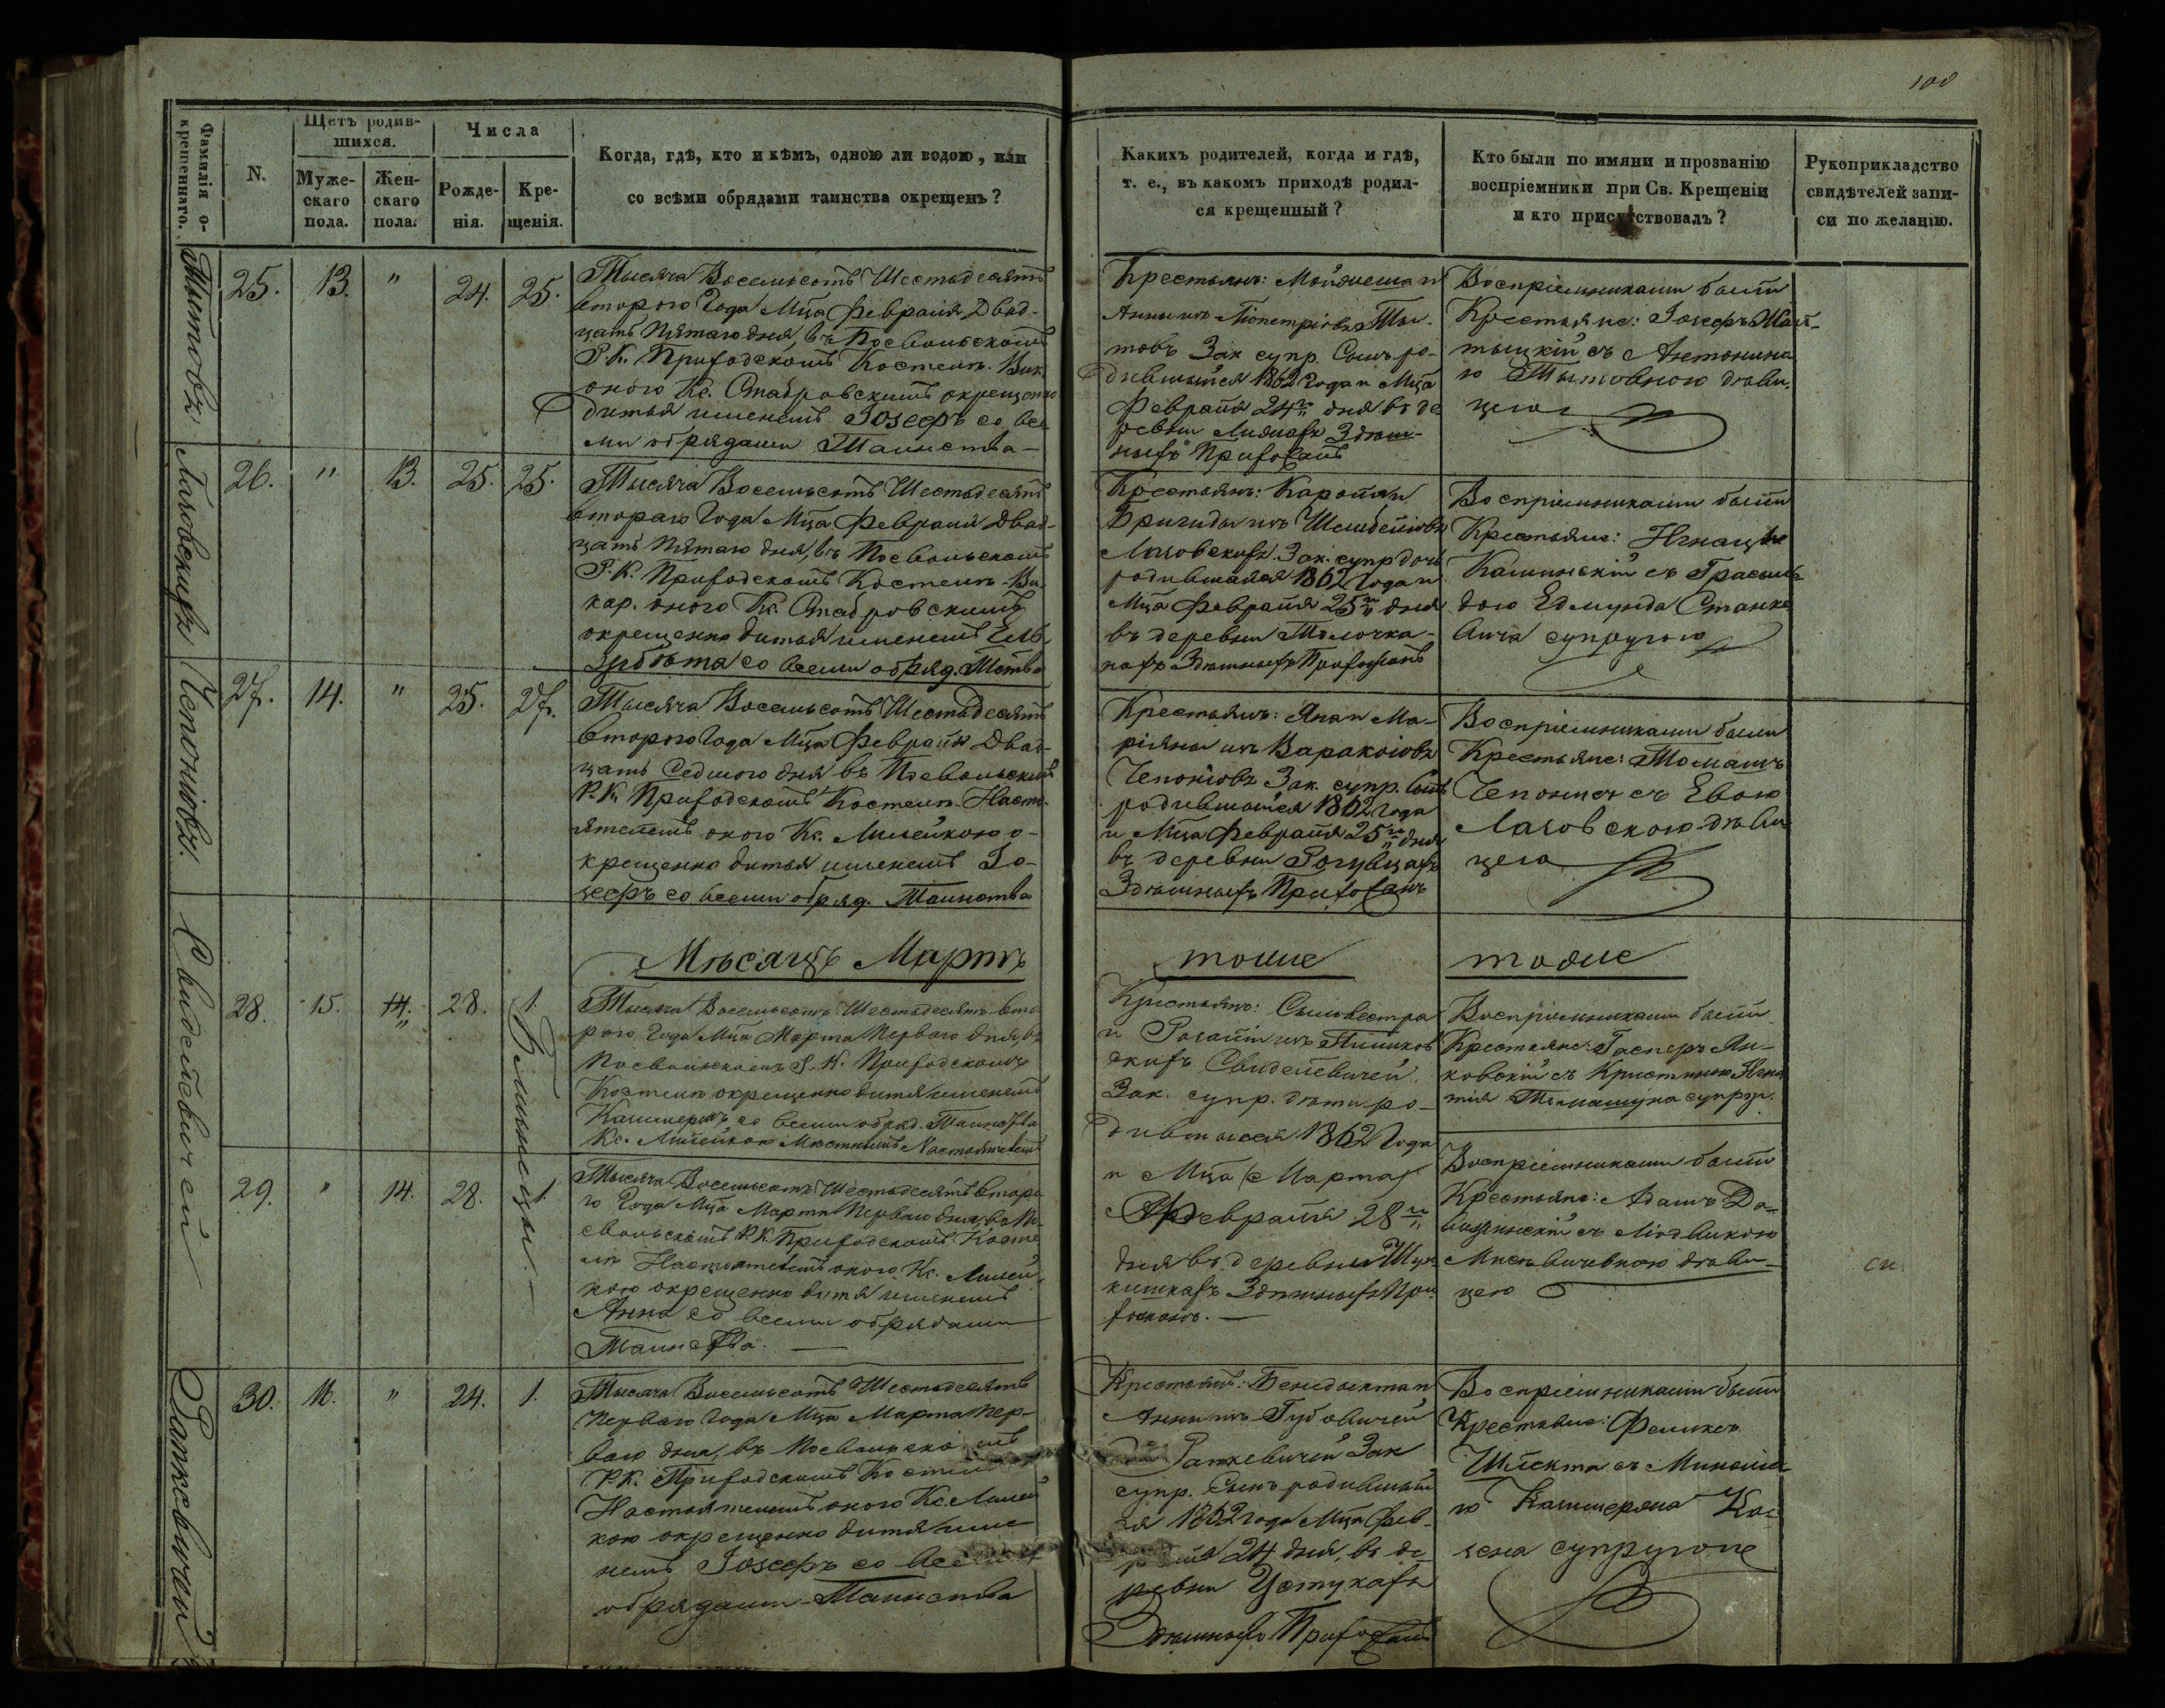 108
Фамилія о-
крещеннаго.
N.
Щетъ родив-
шихся.
Муже-
скаго
пола.
Жен-
скаго
пола.
Числа
Рожде-
нія.
Кре-
щенія.
Когда, гдѣ, кто и кѣмъ, одною ли водою, или
со всѣми обрядами таинства окрещенъ?
Каких​ъ родителей, когда и гдѣ,
т. е., въ какомъ приходѣ родил-
ся крещенный?
Кто были по имяни и прозванію
воспріемники при Св. Крещеніи
и кто присутствовалъ?
Рукоприкладство
свидѣтелей запи-
си по желанію.
Тытовъ
25. 13. " 24. 25.
Тысяча Восемьсотъ Шестьдесятъ
второго Года Мца Февраля Двад-
цать Пятаго дня, въ Посвольскомъ
Р. К. Приходскомъ Костелѣ Вик.
оного Кс. Стабровскимъ окрещенно
дитья именемъ Іозефъ со все-
ми обрядами Таинства
Крестьянъ: и
Анны изъ Ты-
товъ Зак. супр. Сынъ ро-
дившыйся 1862 Года и Мца
Февраля 24го дня въ де
ревни Здѣш-
ныхъ Прихожанъ
Воспріемниками были
Крестьяне: Іозефъ
съ Антонина
ю Тытовною дѣви-
цею
Лаговскихъ
26. " 13. 25. 25.
Тысяча Восемьсотъ Шестьдесятъ
втораго Года Мца Февраля Двад-
цать Пятаго дня, въ Посвольскомъ
Р. К. Приходскомъ Костелѣ Ви-
кар. оного Кс. Стабровскимъ
окрещенно дитья именемъ Ель-
збѣта со всеми обряд. Т-ства
Крестьянъ: Кароля и
Бригиды изъ
Лаговскихъ Зак. супр. дочь
родившаяся 1862 Года и
Мца Февраля 25го дня
въ деревни
Здѣшныхъ Прихожанъ
Воспріемниками были
Крестьяне: Игнацы
Каминскій съ
Едмунда Станке
вича супругою
Чепонювъ.
27. 14. " 25. 27.
Тысяча Восемьсотъ Шестьдесятъ
второго Года Мца Февраля Двад-
цать Седмого дня въ Посвольскимъ
Р. К. Приходскомъ Костелѣ Насто-
ятелемъ оного Кс. Милейкою о-
крещенно дитья именемъ Іо-
зефъ со всеми обряд. Таинства
Крестьянъ: Яна и Ма-
ріяны изъ Вараконовъ
Чепонювъ Зак. супр. сынъ
родившыйся 1862 Года
и Мца Февраля 25го дня
въ деревни
Здѣшныхъ Прихожанъ
Воспріемниками были
Крестьяне: Томашъ
Чепонисъ съ Евою
Лаговскою дѣви
цею
Мѣсяцъ Мартъ
тоже
тоже
Свидлевичей
Близнецы.
28. 15. 14. " 28. 1.
Тысяча Восемьсотъ Шестьдесятъ вто-
рого Года Мца Марта Перваго дня, въ
Посвольскомъ Р. К. Приходскомъ
Костелѣ окрещенно дитя именемъ
Казимеръ со всеми обряд. Таинства
Кс. Милейкою Мѣстнымъ Настоятелемъ
Крестьянъ: Сыльвестра
и Розаліи изъ
скихъ Свидлевичей
Зак. супр. дѣти ро-
дившыеся 1862 Года
и Мца (Марта)
Февраля 28го
дня въ деревни
Здѣшныхъ При
хожанъ.
Воспріемниками были
Крестьяне: Гасперъ Ян-
ковскій съ Кристиною
супруг.
29. " 14. 28. 1.
Тысяча Восемьсотъ Шестьдесятъ второ-
го Года Мца Марта Перваго дня, въ По-
свольскомъ Р. К. Приходскомъ Косте-
лѣ Настоятелемъ оного Кс. Милей-
кою окрещенно дитя именемъ
Анна со всеми обрядами
Таинства.
Воспріемниками были
Крестьяне: Адамъ
съ Людвикою
дѣви-
цею
Раткевичей
30. 16. " 24. 1.
Тысяча Восемьсотъ Шестьдесятъ
Перваго Года Мца Марта Пер-
ваго дня, въ Посвольскомъ
Р. К. Приходскомъ Костелѣ
Настоятелемъ оного Кс. Милей
кою окрещенно дитя име-
немъ Іозефъ со всеми
обрядами Таинства
Крестьянъ: Бенедыкта и
Анны изъ Губовичей
Раткевичей Зак
супр. Сынъ родившый
ся 1862 Года Мца Фев-
раля 24 дня, въ де-
ревни Устукахъ
Здѣшныхъ Прихожанъ
Воспріемниками были
Крестьяне: Феликсъ
съ
ю Казимеряна
супругою